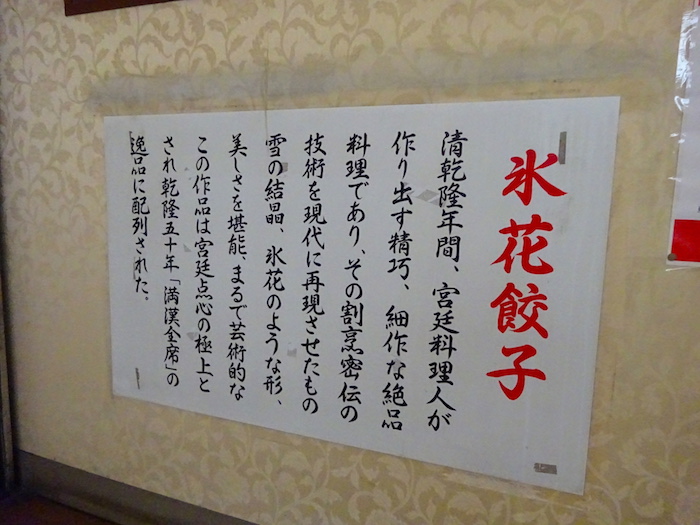 氷花餃子
清乾隆年間、宮廷料理人が
作り出す精巧、細作な絶品
料理であり、その割烹密伝の
技術を現代に再現させたもの
雪の結晶、氷花のような形、
美しさを堪能、まるで芸術的な
この作品は宮廷点心の極上と
され乾隆五十年「満漢全席」の
逸品に配列された。